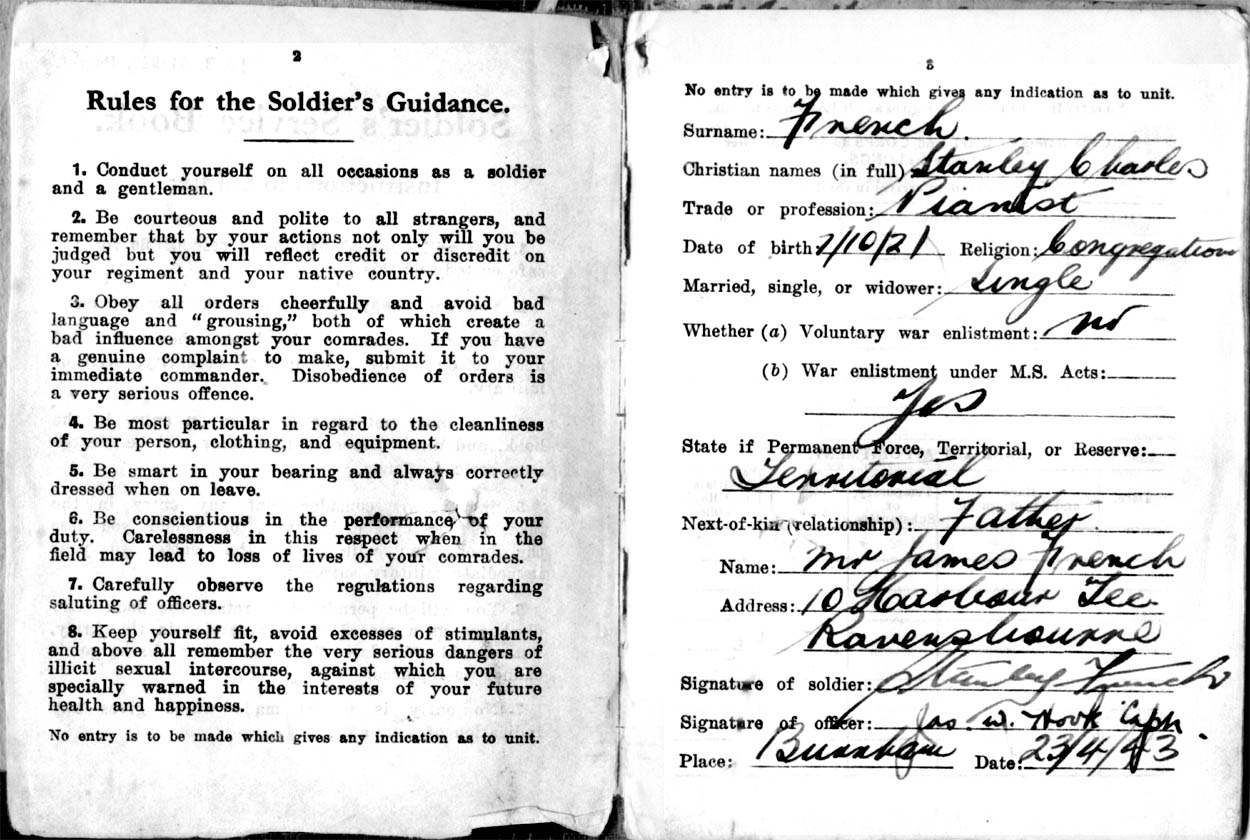 2
Rules for the Soldier's Guidance.
1. Conduct yourself on all occasions as a soldier
and a gentleman.
2. Be courteous and polite to all strangers, and
remember that by your actions not only will you be
judged but you will reflect credit or discredit on
your regiment and your native country.
3. Obey all orders cheerfully and avoid bad
language and "grousing," both of which create a
bad influence amongst your comrades. If you have
a genuine complaint to make, submit it to your
immediate commander. Disobedience of orders is
a very serious offence.
4. Be most particular in regard to the cleanliness
of your person, clothing, and equipment.
5. Be smart in your bearing and always correctly
dressed when on leave.
6. Be conscientious in the performance of your
duty. Carelessness in this respect when in the
field may lead to loss of lives of your comrades.
7. Carefully observe the regulations regarding
saluting of officers.
8. Keep yourself fit, avoid excesses of stimulants,
and above all remember the very serious dangers of
illicit sexual intercourse, against which you are
specially warned in the interests of your future
health and happiness.
No entry is to be made which gives any indication as to unit.
3
No entry is to be made which gives any indication as to unit.
Surname: French.
Christian names (in full) Stanley Charles
Trade or profession: Pianist
Date of birth 7/10/21 Religion: Congregation
Married, single, or widower: Single
Whether (a) Voluntary war enlistment: no
(b) War enlistment under M.S. Acts:
Yes
State if Permanent Force, Territorial, or Reserve:
Territorial
Next-of-kin (relationship): Father.
Name: Mr James French
Address: 10 Harbour Tce
Ravensbourne
Signature of soldier: Stanley French
Signature of officer: Jas. W. Hook Capt.
Place: Burnham Date: 23/4/43